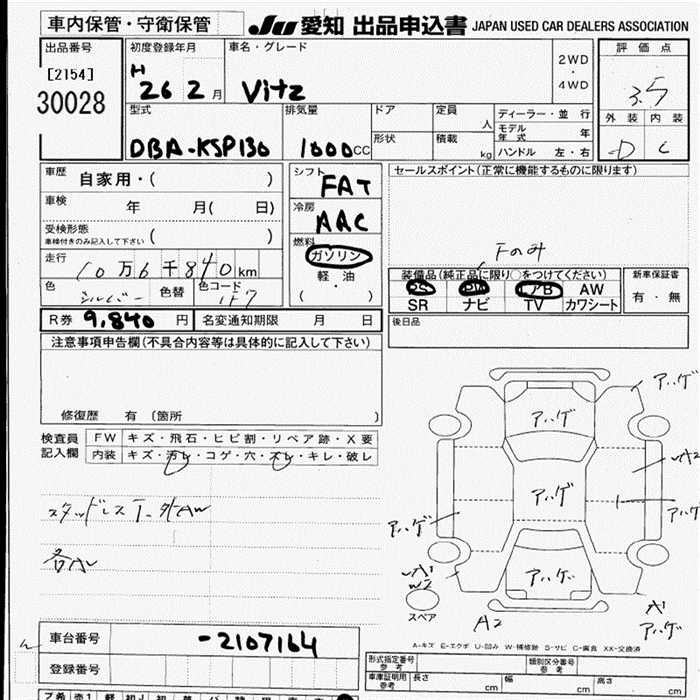 車内保管・守衛保管
JU 愛知 出品申込書 JAPAN USED CAR DEALERS ASSOCIATION
出品番号
[2154]
30028
初度登録年月
H
26 2月
車名・グレード
Vitz
2WD
・
4WD
評価点
3.5
外装 内装
D C
型式
DBA-KSP130
排気量
1000CC
ドア
形状
定員
人
積載
kg
ディーラー・並 行
モデル年式 年
ハンドル 左・右
車歴
自家用・( )
車検
年 月( 日)
受検形態
車検付きのみ記入して下さい ( )
走行
10万6千840km
色
シルバー
色替
色コード
1F7
シフト
FAT
冷房
AAC
燃料
ガソリン
軽・油
( ・ )
セールスポイント(正常に機能するものに限ります)
Fのみ
装備品(純正品に限り○をつけてください)
PS PW エアB AW
SR ナビ TV カワシート
新車保証書
有・無
後日品
R券 9,840円
名変通知期限 月 日
注意事項申告欄(不具合内容等は具体的に記入して下さい)
修復歴 有 〔箇所 )
検査員
記入欄
FW キズ・飛石・ヒビ割・リペア跡・X要
内装 キズ・汚れ・コゲ・穴・スレ・キレ・破レ
スタッドレス
各A
アハゲ
アハゲ
アハゲ
アハゲ
アハゲ
アハゲ
A2
A1
アハゲ
スペア
A-キズ E-エクボ U-凹み W-補修跡 S-サビ C-腐食 XX-交換済
車台番号
-2107164
登録番号
形式指定番号
参考
類別区分番号
参考
車庫証明用
参考
長さ cm
幅 cm
高さ cm